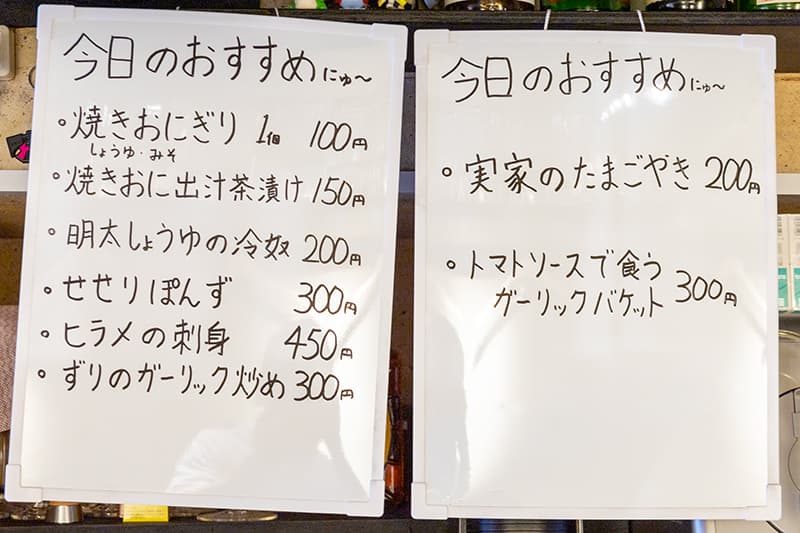 今日のおすすめにゅ〜
・焼きおにぎり 1個 100円
しょうゆ・みそ
・焼きおに出汁茶漬け 150円
・明太しょうゆの冷奴 200円
・せせりぽんず 300円
・ヒラメの刺身 450円
・ずりのガーリック炒め 300円
今日のおすすめにゅ〜
・実家のたまごやき 200円
・トマトソースで食う
ガーリックバケット 300円